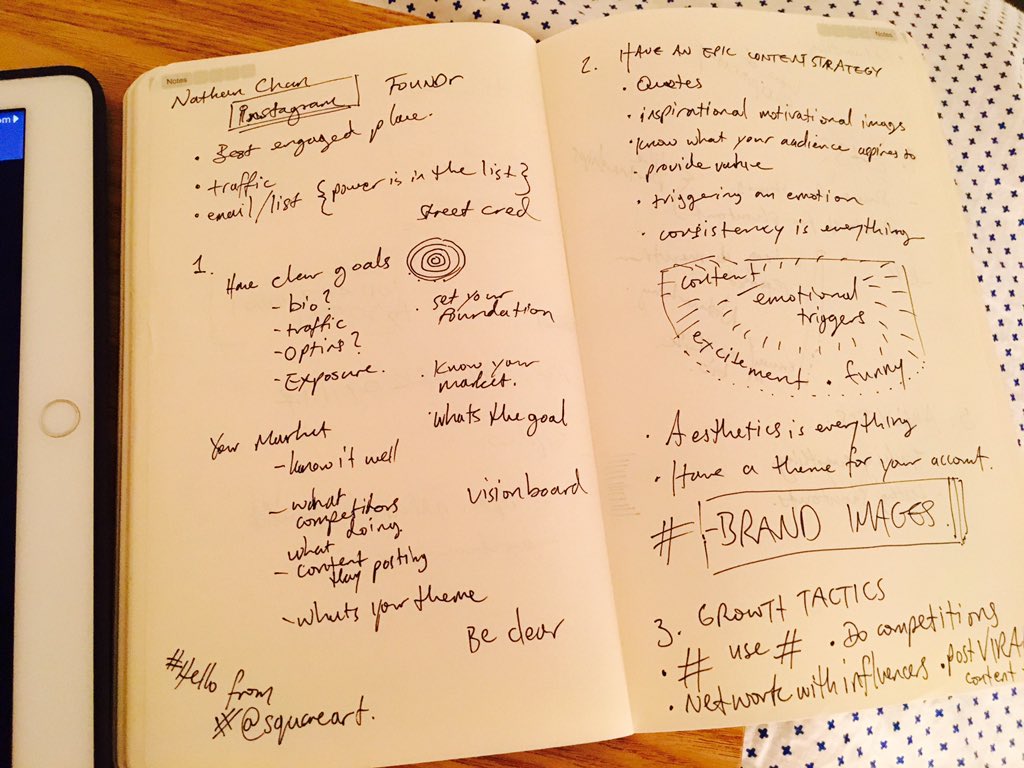 Notes
Nathan Chan
FOUNDr
Instagram
• Best engaged place.
• traffic
• email/list {power is in the list}
street cred
1. Have clear goals
- bio?
- traffic
- Optins?
- Exposure.
• set your
foundation
• Know your
market.
• whats the goal
Your Market
- know it well
- what
competitors
doing
- what
content
they posting
- whats your theme
visionboard
Be clear
#Hello from
@squareart.
Notes
2. HAVE AN EPIC CONTENT STRATEGY
• Quotes
• inspirational motivational images
• know what your audience aspires to
• provide value
• triggering an emotion
• consistency is everything
content
emotional
triggers
excitement • funny
• Aesthetics is everything
• Have a theme for your account.
# BRAND IMAGES.
3. GROWTH TACTICS
• # use # • Do competitions
• Network with influencers • post VIRA
content
om